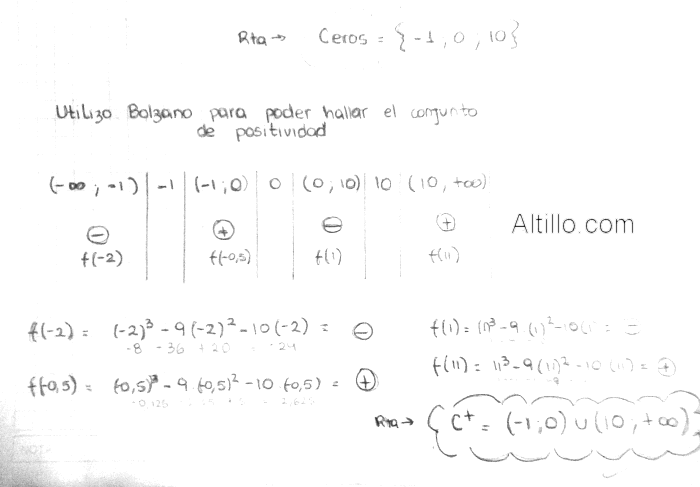 Rta → Ceros = {-1, 0, 10}
Utilizo Bolzano para poder hallar el conjunto
de positividad
(-∞; -1) | -1 | (-1; 0) | 0 | (0; 10) | 10 | (10, +∞)
⊖ ⊕ ⊖ ⊕
f(-2) f(-0,5) f(1) f(11)
Altillo.com
f(-2) = (-2)³ - 9(-2)² - 10(-2) = ⊖
-8 -36 +20 = -24
f(-0,5) = (-0,5)³ - 9(-0,5)² - 10(-0,5) = ⊕
-0,125
f(1) = (1)³ - 9(1)² - 10(1) =
f(11) = 11³ - 9(11)² - 10(11) = ⊕
Rta → { C⁺ = (-1; 0) ∪ (10; +∞) }